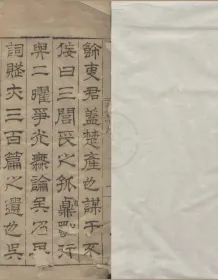 餘東君蓋楚產也謀于不
佞曰三閭氏之孤鼎行
與二曜爭光無論矣乃
詞賦大三百篇之遺也吳